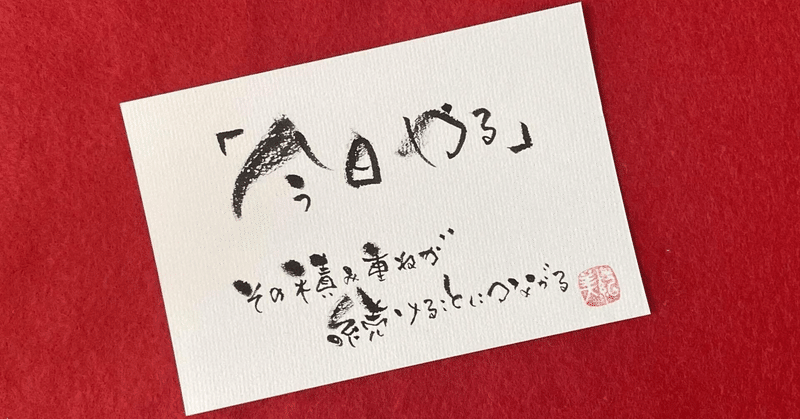 「今日やる」
その積み重ねが
続けることにつながる